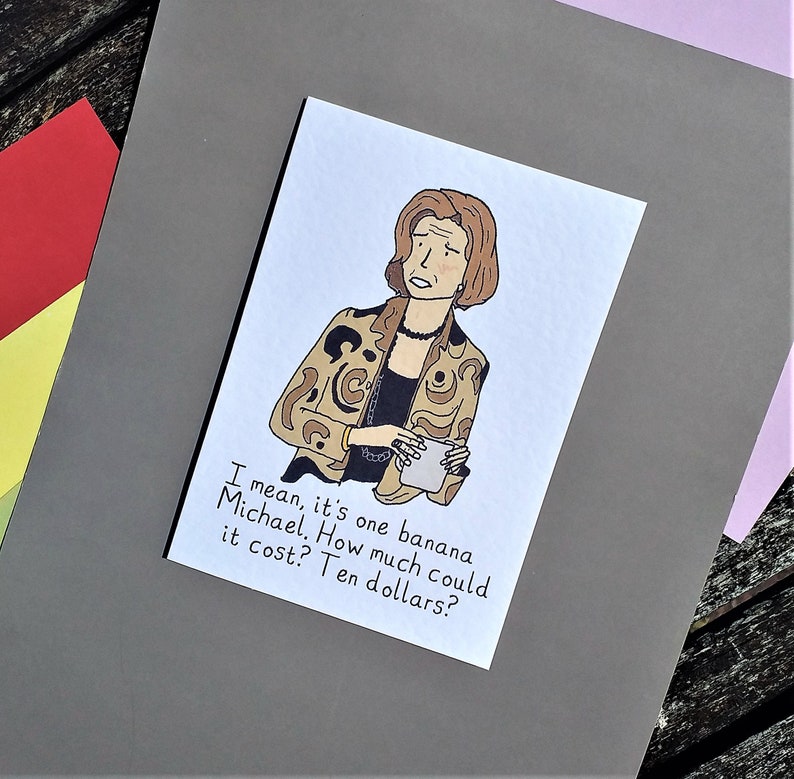 I mean, it's one banana
Michael. How much could
it cost? Ten dollars?